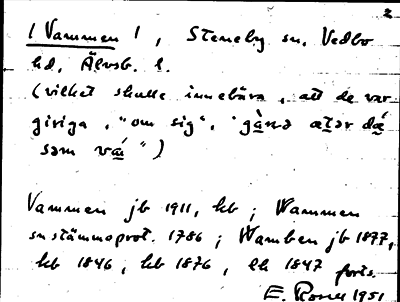 2
/ Vammen / , Steneby sn, Vedbo
hd, Älvsb. l.
(vilket skulle innebära, att de var
giriga, "om sig", gånə ætər dǻ
som vá")
Vammen jb 1911, kb ; Wammen
sn stämmoprot. 1786 ; Wamben jb 1877,
kb 1846, kb 1876, lk 1847 forts.
E. Rosell 1951